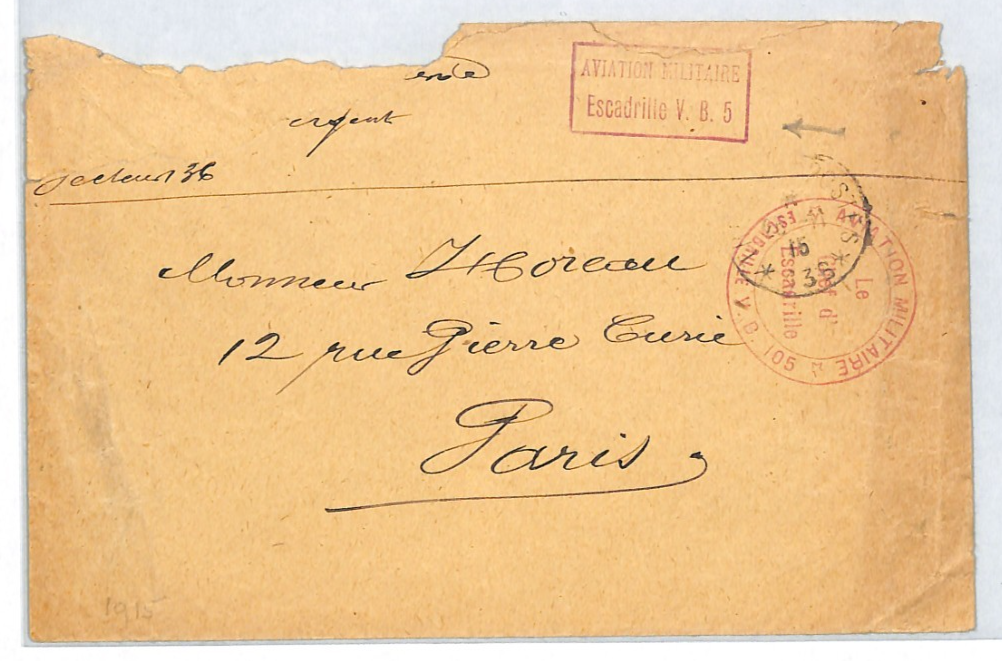 AVIATION MILITAIRE
Escadrille V. B. 5
Secteur 36
Monsieur Moreau
12 rue Pierre Curie
Paris
AVIATION MILITAIRE
ESCADRILLE V. B. 105
Le
Chef d'
Escadrille
POSTES
15
* 36 *
1915